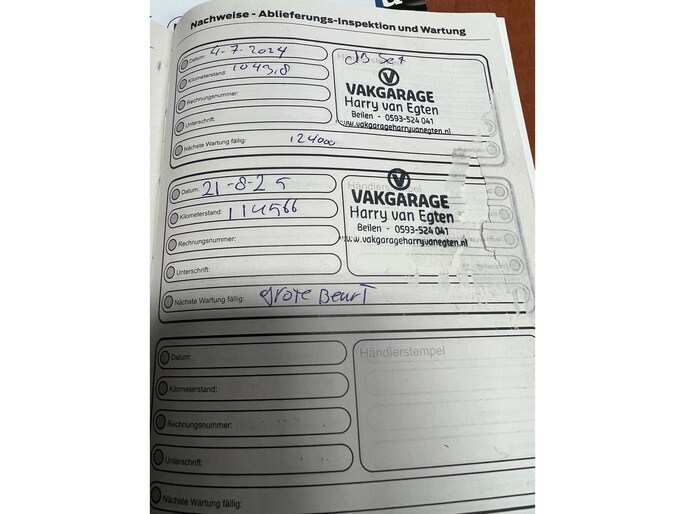 Nachweise - Ablieferungs-Inspektion und Wartung
Datum: 4-7-2024
Kilometerstand: 104318
Rechnungsnummer:
Unterschrift:
Nächste Wartung fällig: 124000
VAKGARAGE
Harry van Egten
Beilen - 0593-524 041
www.vakgarageharryvanegten.nl
Datum: 21-8-25
Kilometerstand: 114566
Rechnungsnummer:
Unterschrift:
Nächste Wartung fällig: grote Beurt
Händlerstempel
VAKGARAGE
Harry van Egten
Beilen - 0593-524 041
www.vakgarageharryvanegten.nl
Datum:
Kilometerstand:
Rechnungsnummer:
Unterschrift:
Nächste Wartung fällig:
Händlerstempel